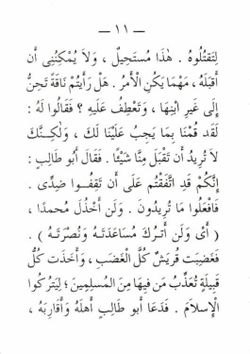 – ١١ –
لِتَقْتُلُوهُ . هٰذَا مُسْتَحِيلٌ ، وَلَا يُمْكِنُنِى أَن
أَقْبَلَهُ ، مَهْمَا يَكُنِ الْأَمْرُ . هَلْ رَأَيْتُمْ نَاقَةً تَحِنُّ
إِلَى غَيرِ ابْنِهَا ، وَتَعْطِفُ عَلَيْهِ ؟ فَقَالُوا لَهُ :
لَقَد قُمْنَا بِمَا يَجِبُ عَلَيْنَا لَكَ ، وَلٰكِنَّكَ
لَا تُرِيدُ أَن تَقْبَلَ مِنَّا شَيْئًا . فَقَالَ أَبو طَالِبٍ :
إِنَّكُمْ قَدِ اتَّفَقْتُم عَلَى أَن تَقِفُوا ضِدِّى .
فَافْعَلُوا مَا تُرِيدُونَ . وَلَن أَخْذُلَ مُحمدًا ،
( أَىْ وَلَن أَتْرُكَ مُسَاعَدَتَهُ وَنُصْرَتَهُ ) .
فَغَضِبَت قُرَيْشٌ كُلَّ الْغَضَبِ ، وَأَخَذَت كُلُّ
قَبِيلَةٍ تُعَذِّبُ مَن فِيهَا مِنَ الْمُسلِمِينَ ؛ لِيَتْرُكُوا
الْإِسلَامَ . فَدَعَا أَبو طَالِبٍ أَهلَهُ وَأَقَارِبَهُ ،